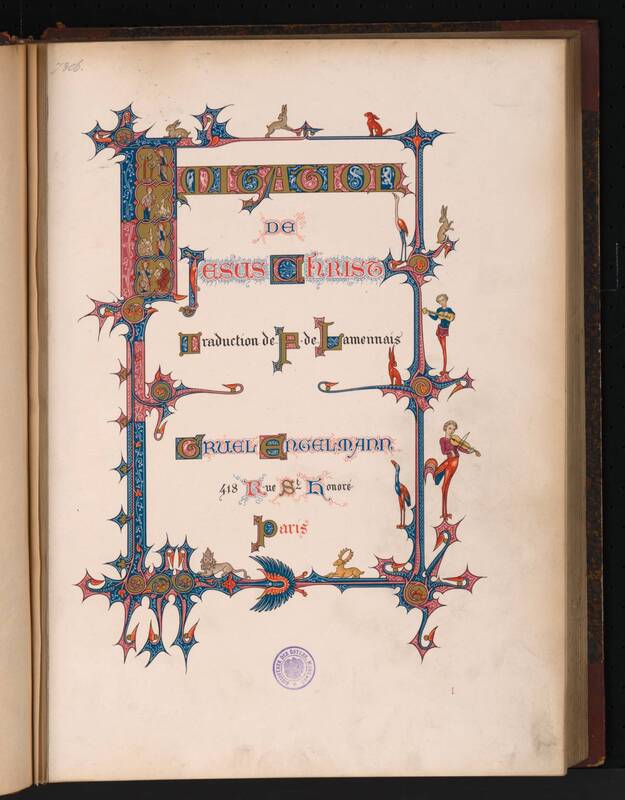 7306.
IMITATION
DE
JESUS CHRIST
Traduction de F. de Lamennais
GRUEL ENGELMANN
418 Rue St. Honoré
Paris
1